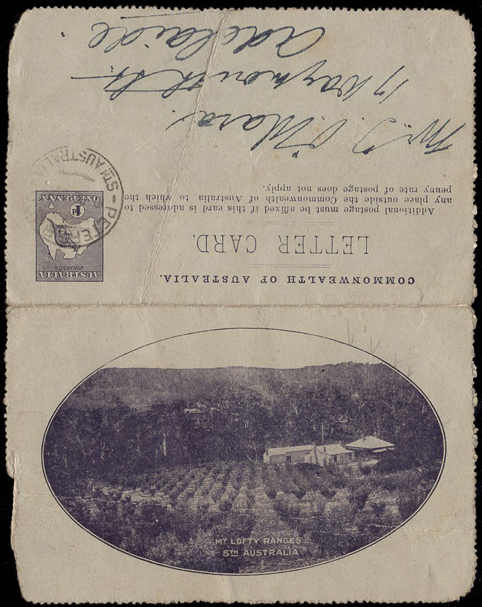 COMMONWEALTH OF AUSTRALIA.
LETTER CARD.
Additional postage must be affixed if this card is addressed to
any place outside the Commonwealth of Australia to which the
penny rate of postage does not apply.
AUSTRALIA
POSTAGE
1d
ONE PENNY
STH AUSTRALIA
Mr. J. O'Mara.
17 Waymouth St.
Adelaide
MT LOFTY RANGES
STH AUSTRALIA